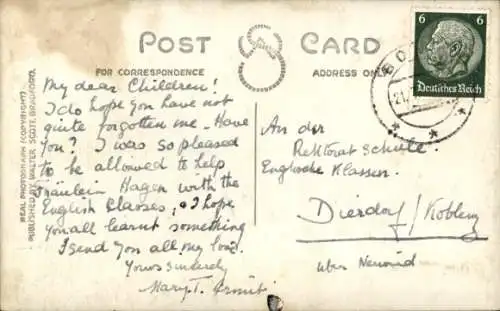 POST CARD
FOR CORRESPONDENCE
ADDRESS ONLY
REAL PHOTOGRAPH (COPYRIGHT)
PUBLISHED BY WALTER SCOTT, BRADFORD.
6 6
Deutsches Reich
21
My dear Children!
I do hope you have not
quite forgotten me. Have
you? I was so pleased
to be allowed to help
Fräulein Hagen with the
English Classes; I hope
you all learnt something
I send you all my love.
Yours sincerely
Mary T.
An der
Rektorat schule.
Englische Klassen.
Dierdorf/Koblenz
über Neuwied